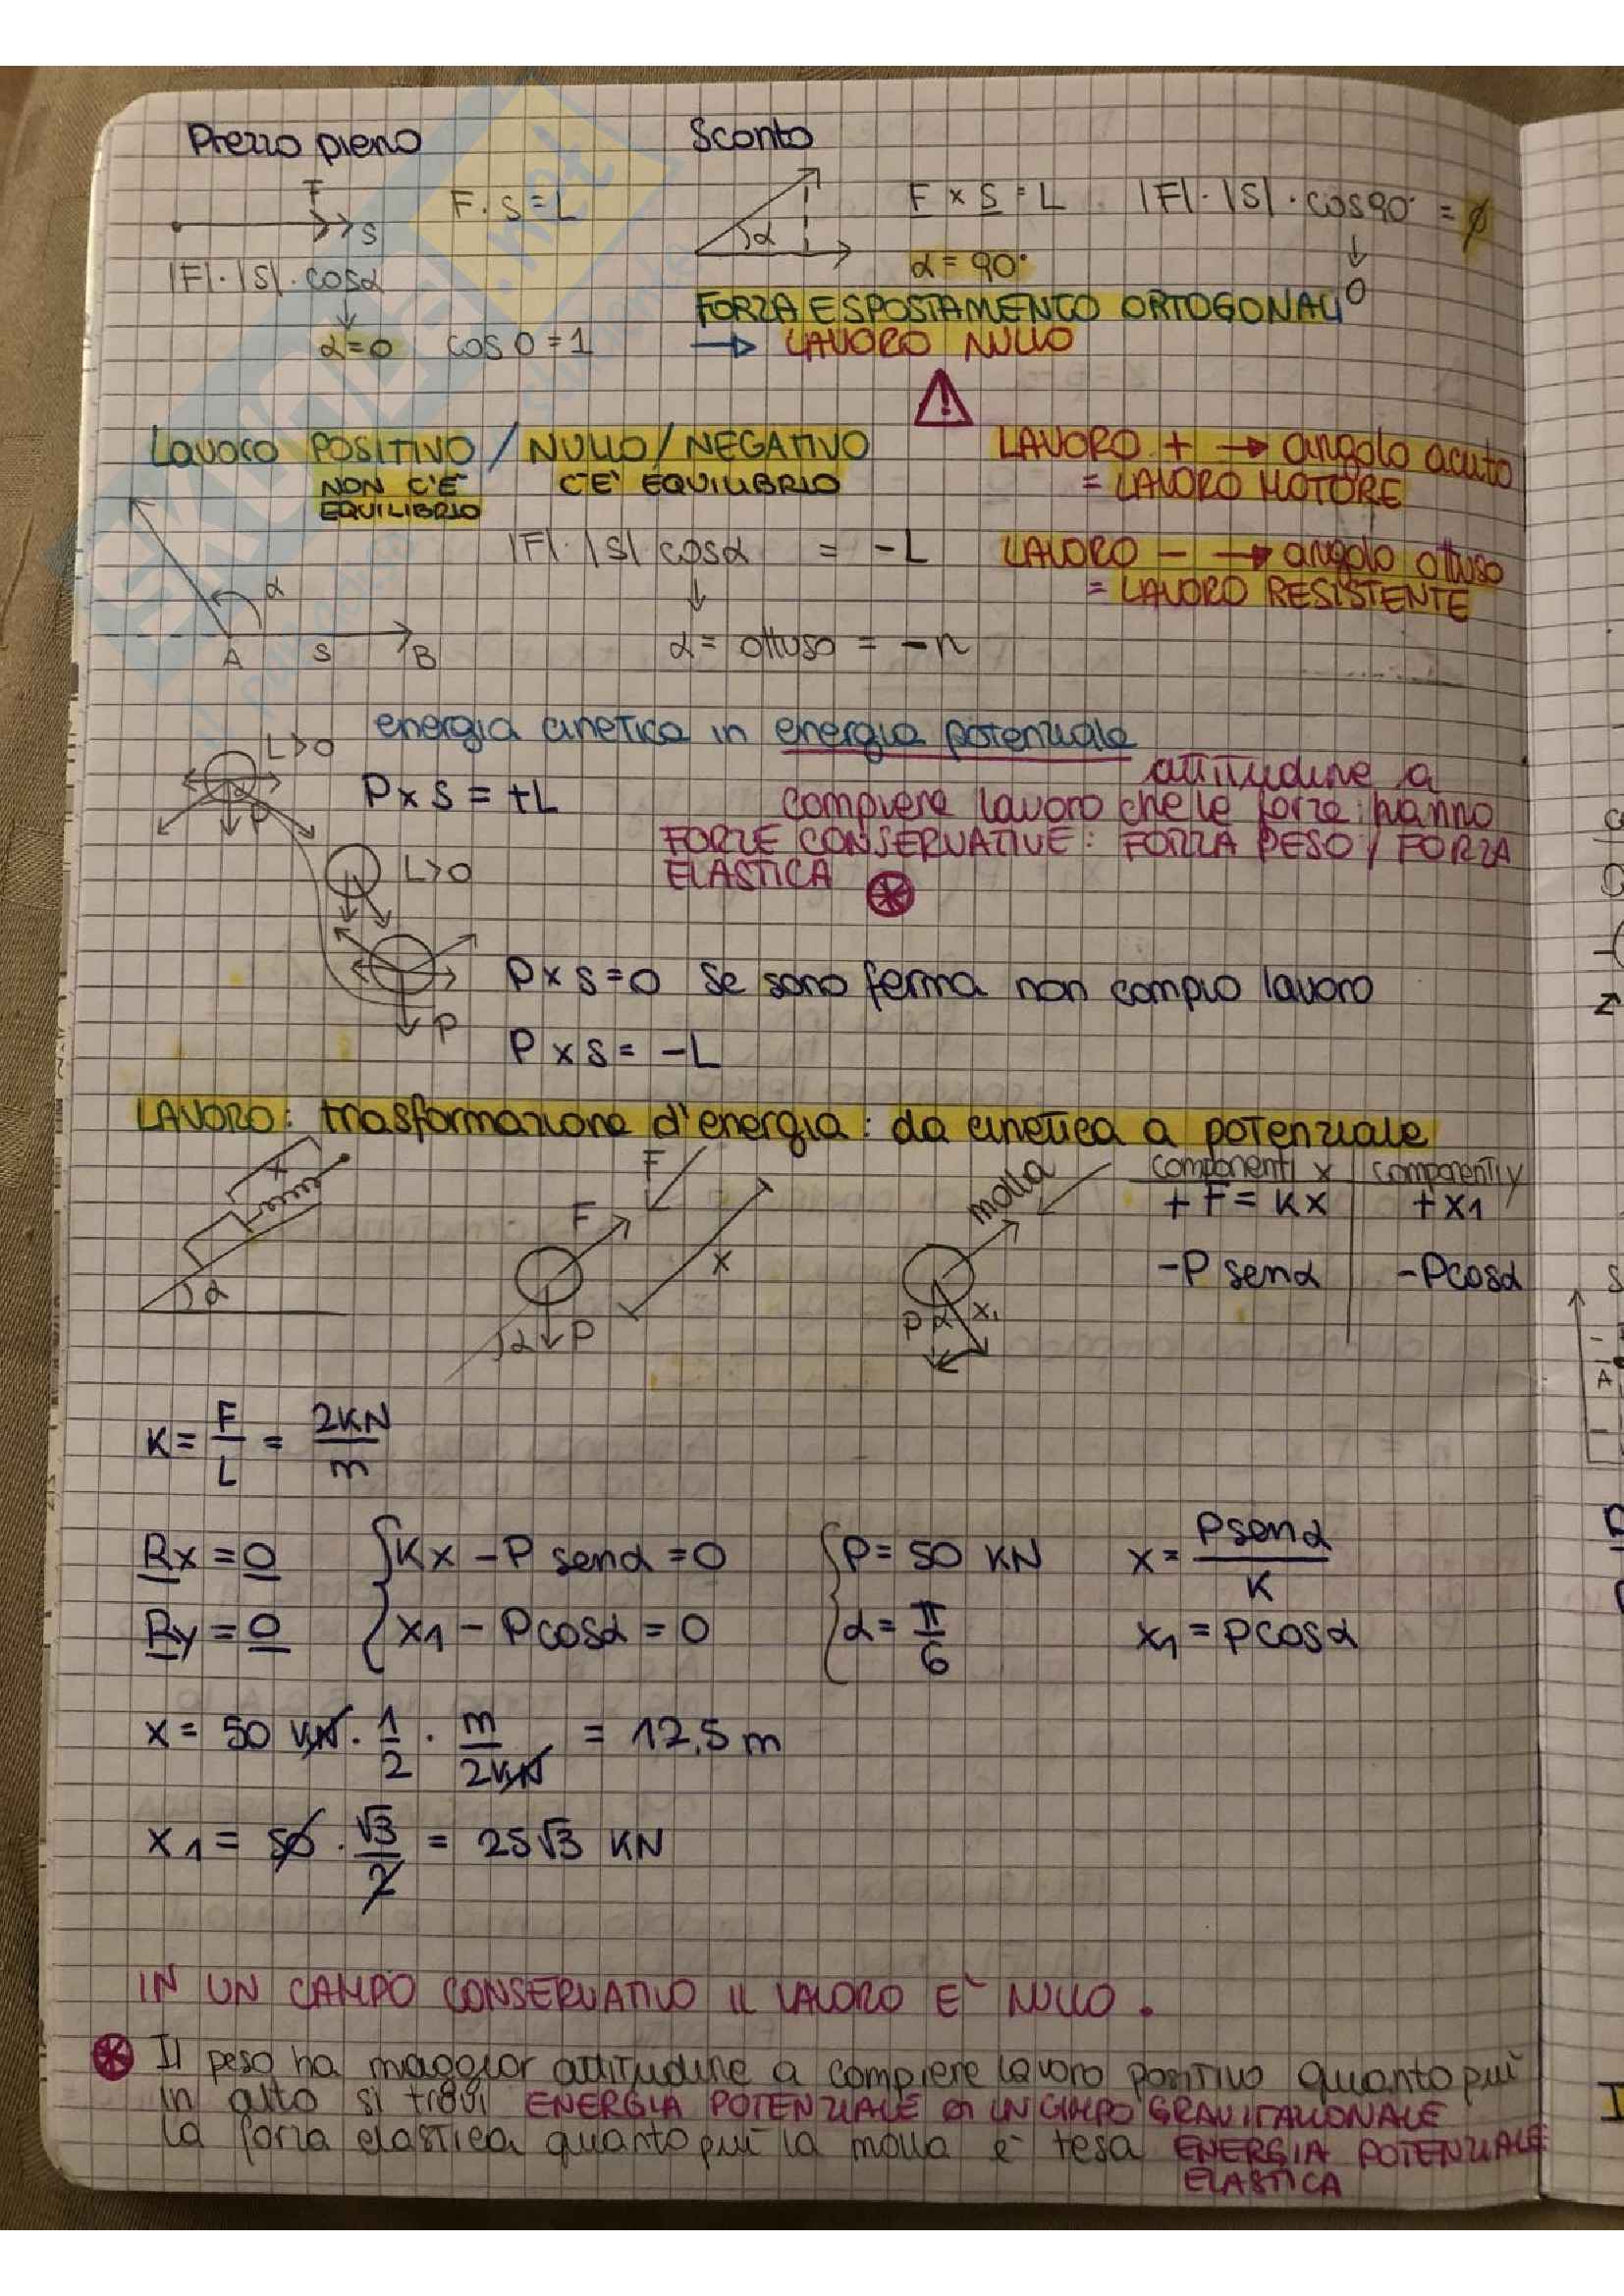 Prezzo pieno
Sconto
F
F · S = L
S
|F| · |S| · cosα
α=0 cos0=1
α
F × S = L |F| · |S| · cos90° = ∅
α = 90°
0
FORZA E SPOSTAMENTO ORTOGONALI
→ LAVORO NULLO
!
Lavoro POSITIVO / NULLO / NEGATIVO
NON C'È EQUILIBRIO
C'E' EQUILIBRIO
LAVORO + → angolo acuto
= LAVORO MOTORE
|F| · |S| cosα = -L
LAVORO - → angolo ottuso
= LAVORO RESISTENTE
α = ottuso = -n
α
A S B
energia cinetica in energia potenziale
L>0
P
P × S = +L
attitudine a
compiere lavoro che le forze hanno
FORZE CONSERVATIVE: FORZA PESO / FORZA
ELASTICA ⊛
L>0
P × S = 0 Se sono ferma non compio lavoro
P
P × S = -L
LAVORO: trasformazione d'energia: da cinetica a potenziale
x
α
F
F
x
α P
molla
P α x1
componenti x | componenti y
+ F = Kx | + x1
-P senα | -Pcosα
K = F/L = 2KN/m
Rx = 0 { Kx - P senα = 0 { P = 50 KN x = Psenα/K
Ry = 0 { x1 - Pcosα = 0 { α = π/6 x1 = Pcosα
x = 50 KN · 1/2 · m/2KN = 12,5 m
x1 = 50 · √3/2 = 25√3 KN
IN UN CAMPO CONSERVATIVO IL LAVORO E' NULLO.
⊛ Il peso ha maggior attitudine a compiere lavoro positivo quanto più
in alto si trovi ENERGIA POTENZIALE DI UN CAMPO GRAVITAZIONALE
la forza elastica quanto più la molla è tesa ENERGIA POTENZIALE
ELASTICA